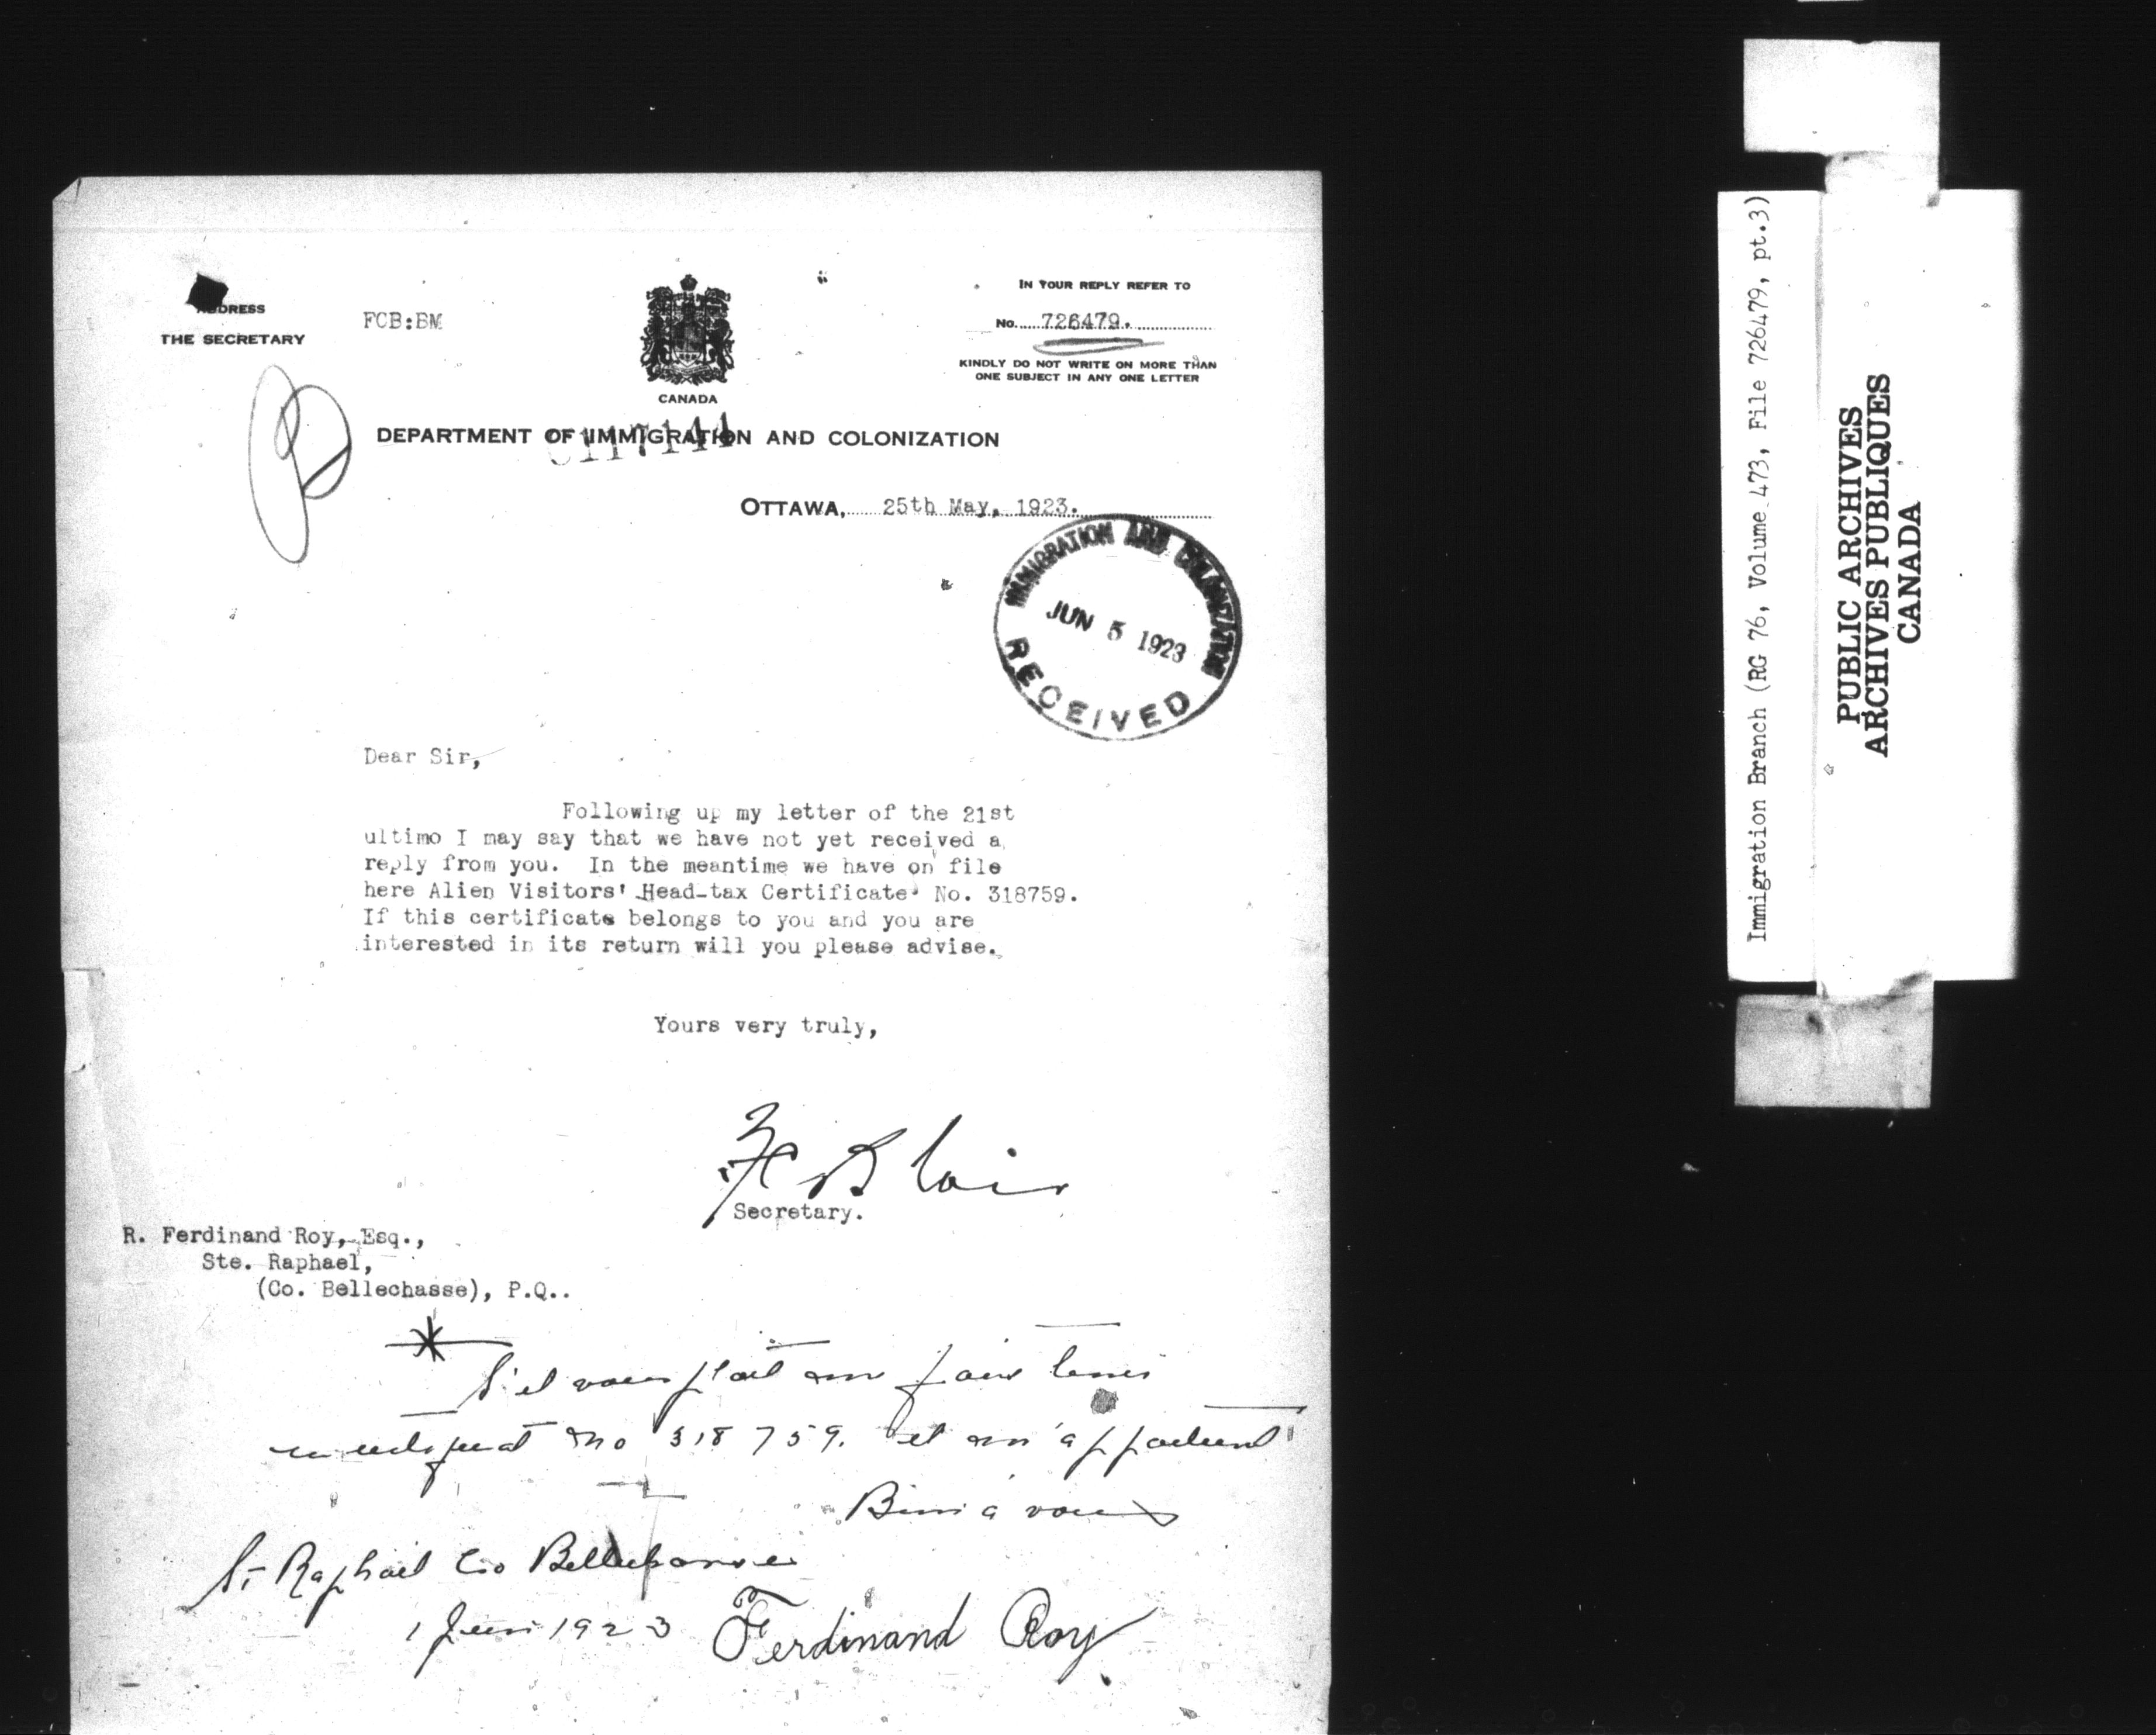 ADDRESS
THE SECRETARY
FCB:BM
CANADA
IN YOUR REPLY REFER TO
No. 726479.
KINDLY DO NOT WRITE ON MORE THAN
ONE SUBJECT IN ANY ONE LETTER
DEPARTMENT OF IMMIGRATION AND COLONIZATION
OTTAWA, 25th May, 1923.
IMMIGRATION AND COLONIZATION
JUN 5 1923
RECEIVED
Dear Sir,
Following up my letter of the 21st
ultimo I may say that we have not yet received a
reply from you. In the meantime we have on file
here Alien Visitors' Head-tax Certificate No. 318759.
If this certificate belongs to you and you are
interested in its return will you please advise.
Yours very truly,
F C Blair
Secretary.
R. Ferdinand Roy, Esq.,
Ste. Raphael,
(Co. Bellechasse), P.Q..
S'il vous plait me faire tenir
no 318759. il m'appartient
Bien à vous
St Raphael Co Bellechasse
1 Juin 1923 Ferdinand Roy
Immigration Branch (RG 76, Volume 473, File 726479, pt.3)
PUBLIC ARCHIVES
ARCHIVES PUBLIQUES
CANADA